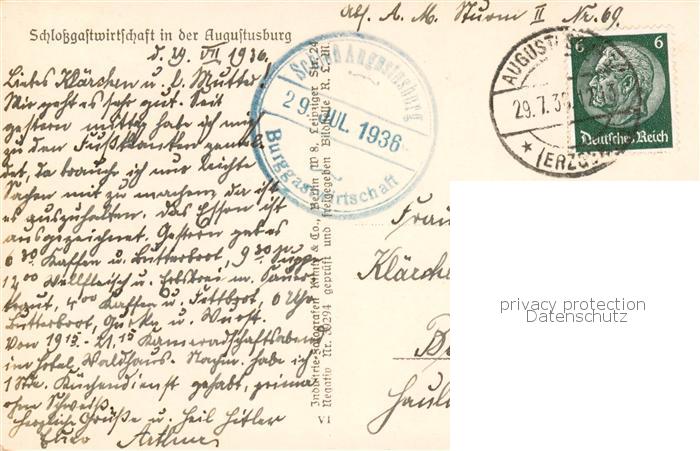 Abs. A. M. Sturm II Nr. 69.
Schloßgastwirtschaft in der Augustusburg
d. 29. VII 1936.
Liebes Klärchen u. l. Mutter!
Mir geht es sehr gut. Seit
gestern mittag habe ich mich
zu den Fußkranken gemel-
det. Da brauche ich nur leichte
Sachen mit zu machen, da ist
es auszuhalten. Das Essen ist
ausgezeichnet. Gestern gab es
6 30 Kaffee u. Butterbrot, 9 30 Suppe
12,00 Wellfleisch u. Erbsbrei m. Sauer-
kraut, 4 00 Kaffee u. Fettbrot, 6 Uhr
Butterbrot, Gurke u. Wurst.
Von 19 15 - 21,15 Kameradschaftsabend
im Hotel Waldhaus. Nachm. habe ich
1 Std. Küchendienst gehabt, prima
ohne Schweiß.
Herzliche Grüße u. Heil Hitler
Euer Arthur
Schloß Augustusburg
29. JUL. 1936
Burggastwirtschaft
Industrie-Fotografen Klinke & Co., Berlin W 8, Leipziger Str. 24
Negativ Nr. 39294 geprüft und freigegeben Bildstelle R. L. M.
VI
AUGUSTUSBURG
29.7.36
(ERZGEB)
6 6
Deutsches Reich
Frau
Klärchen
Haul
privacy protection
Datenschutz